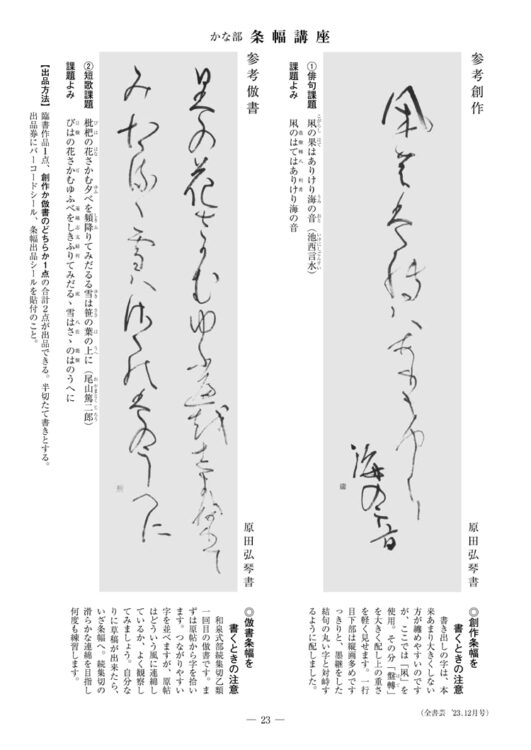 かな部 条幅講座
参考創作
原田弘琴書
①俳句課題
凩の果はありけり海の音（池西言水）
課題よみ
凩のはてはありけり海の音
参考倣書
原田弘琴書
②短歌課題
枇杷の花さかむ夕べを頻降りてみだるる雪は笹の葉の上に（尾山篤二郎）
課題よみ
びはの花さかむゆふべをしきふりてみだるゝ雪はさゝのはのうへに
【出品方法】
臨書作品1点、創作か倣書のどちらか1点の合計2点が出品できる。半切たて書きとする。
出品券にバーコードシール、条幅出品シールを貼付のこと。
◎創作条幅を
書くときの注意
書き出しの字は、本
来あまり大きくしない
方が纏めやすいのです
が、ここでは「凩」を
使用。その分「盤轉」
を大きく配し上の重さ
を軽く見せます。一行
目下部は縦画多めです
っきりと、墨継をした
結句の丸い字と対峙す
るように配しました。
◎倣書条幅を
書くときの注意
和泉式部続集切乙類
一回目の倣書です。ま
ずは原帖から字を拾い
ます。つながりやすい
字を並べますが、原帖
はどういう風に連綿し
ているか、よく観察し
てみましょう。自分な
りに草稿が出来たら、
いざ条幅へ。続集切の
滑らかな連綿を目指し
何度も練習します。
— 23 —
（全書芸 '23.12月号）